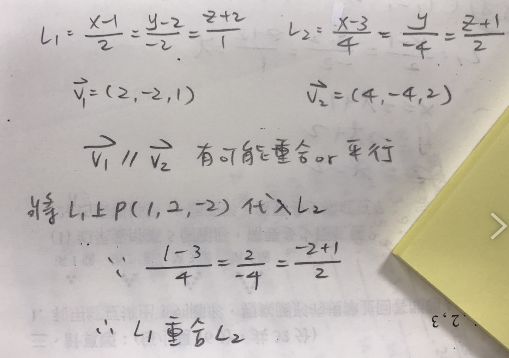 L₁ = (x-1)/2 = (y-2)/-2 = (z+2)/1   L₂ = (x-3)/4 = y/-4 = (z+1)/2
v₁⃗ = (2, -2, 1)   v₂⃗ = (4, -4, 2)
v₁⃗ // v₂⃗ 有可能重合or平行
將L₁上P(1, 2, -2) 代入L₂
∵ (1-3)/4 = 2/-4 = (-2+1)/2
∴ L₁重合L₂